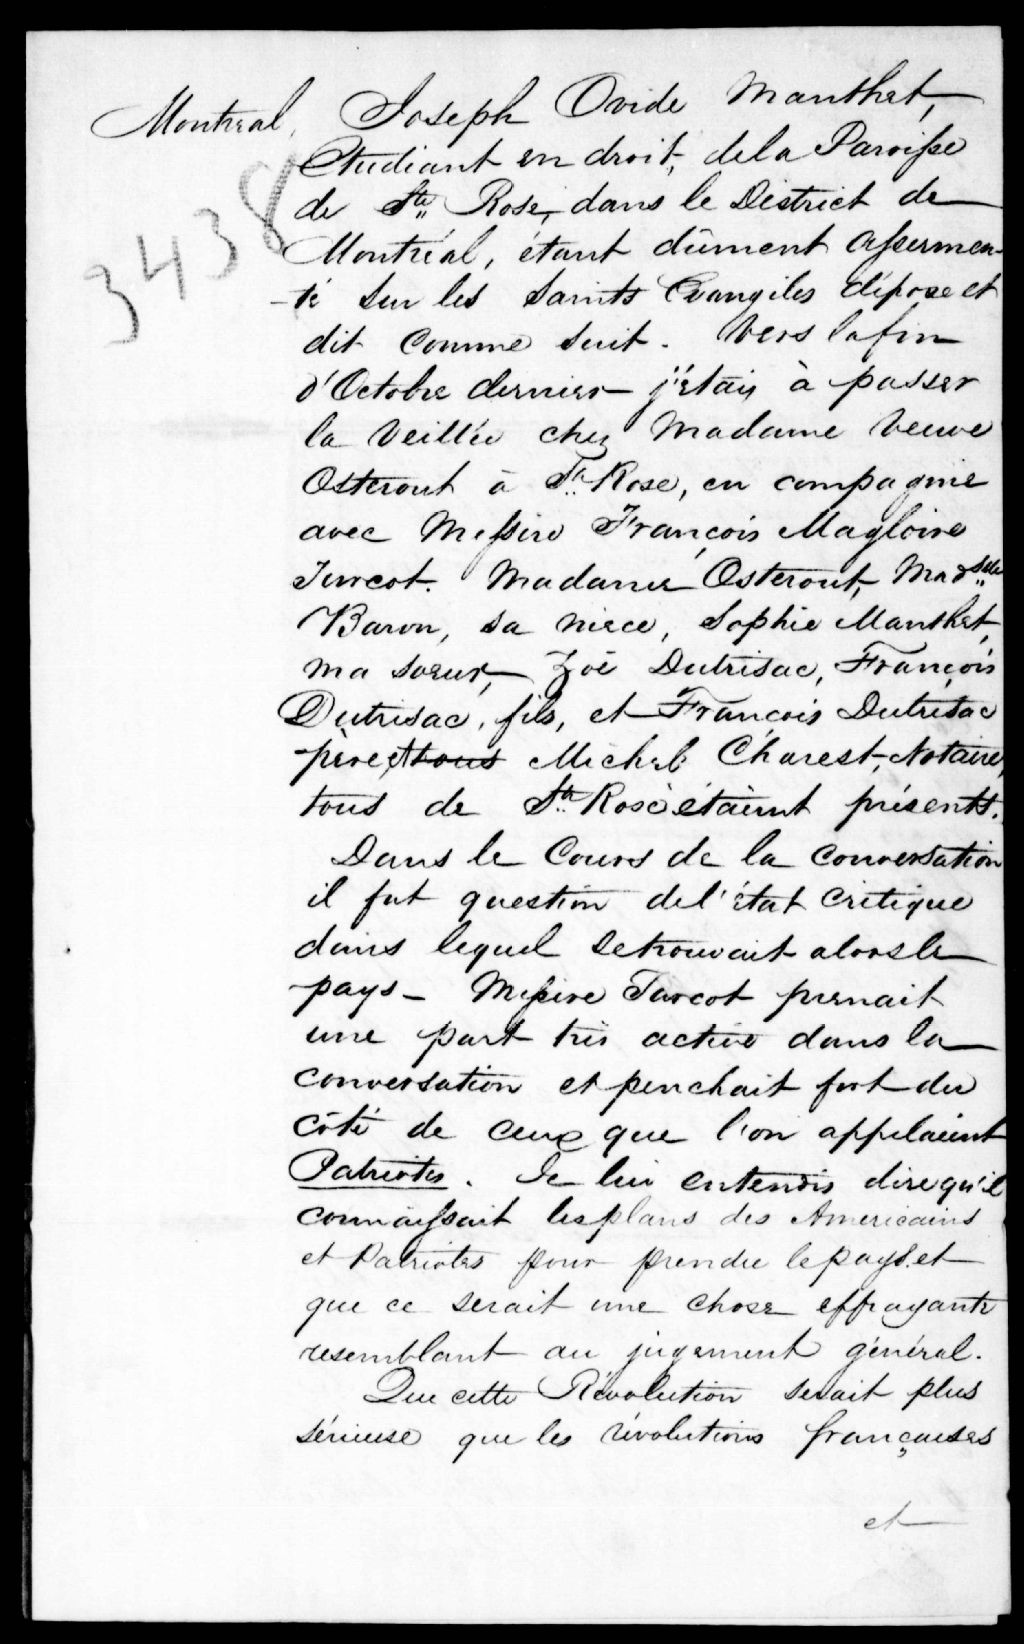 Montreal, Joseph Ovide Manthet,
Etudiant en droit, de la Paroisse
3438
de Ste Rose, dans le District de
Montréal, étant dûment assermen-
-té sur les Saints Evangiles dépose et
dit comme suit. Vers la fin
d'Octobre dernier j'étais à passer
la Veillée chez Madame Veuve
Osterout à Ste Rose, en compagnie
avec Messire François Magloire
Turcot. Madame Osterout, Madselle
Baron, sa niece, Sophie Manthet,
ma soeur, Zoé Dutrisac, François
Dutrisac, fils, et François Dutrisac
père, et tous Michel Charest, Notaire,
tous de Ste Rose étaient présents.
Dans le Cours de la conversation
il fut question de l'état critique
dans lequel se trouvait alors le
pays - Messire Turcot prenait
une part très active dans la
conversation et penchait fort du
côté de ceux que l'on appelaient
Patriotes. Je lui entendis dire qu'il
connaissait les plans des Americains
et Patriotes pour prendre le pays et
que ce serait une chose effrayante
resemblant au jugement général.
Que cette Révolution serait plus
sérieuse que les révolutions françaises
et